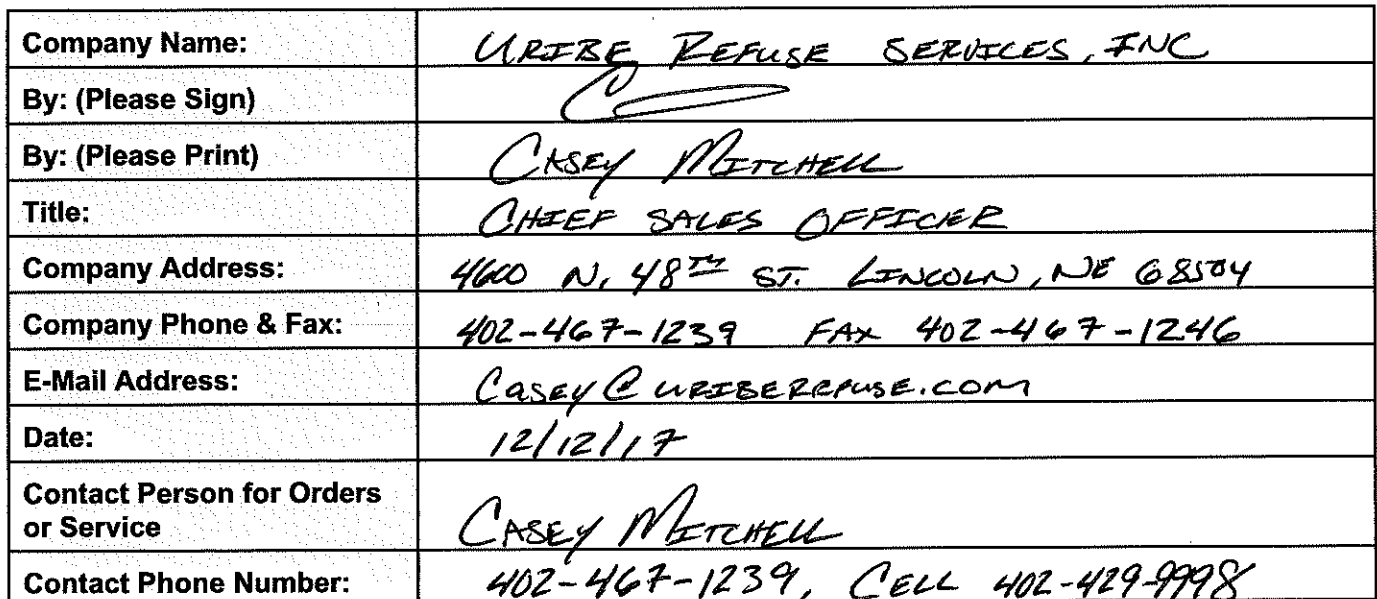 Company Name: URIBE REFUSE SERVICES, INC
By: (Please Sign)
By: (Please Print) CASEY MITCHELL
Title: CHIEF SALES OFFICER
Company Address: 4600 N. 48TH ST. LINCOLN, NE 68504
Company Phone & Fax: 402-467-1239 FAX 402-467-1246
E-Mail Address: CASEY@URIBEREFUSE.COM
Date: 12/12/17
Contact Person for Orders
or Service CASEY MITCHELL
Contact Phone Number: 402-467-1239, CELL 402-429-9998